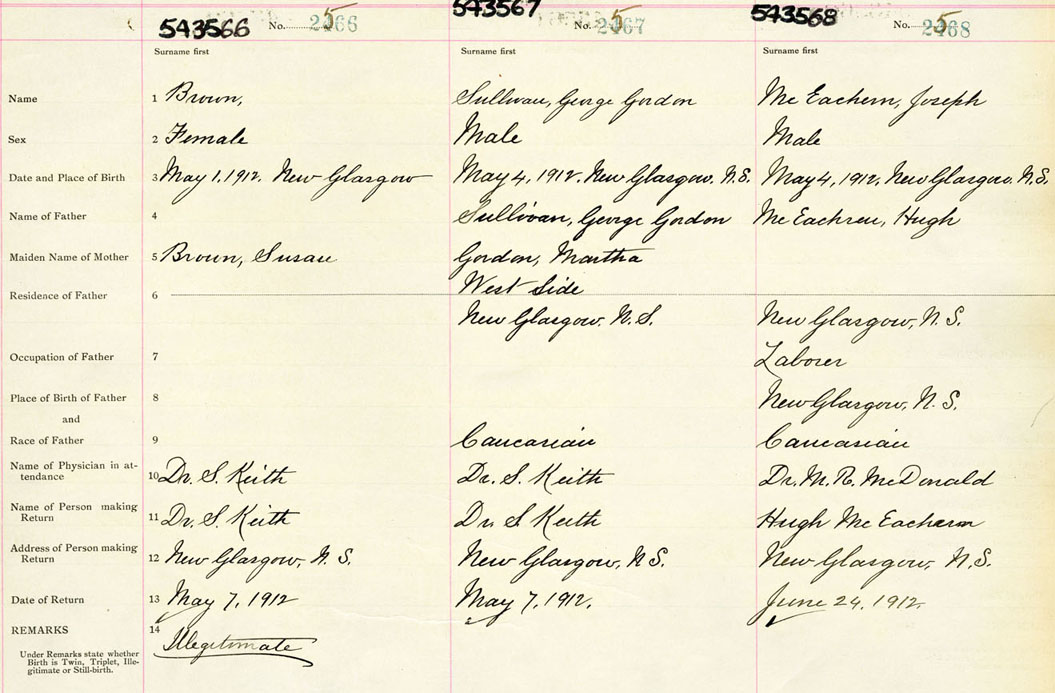 543566 No. 2466 5
543567 No. 2467 5
543568 No. 2468 5
Surname first Surname first Surname first
Name 1 Brown, Sullivan, George Gordon Mc Eachern, Joseph
Sex 2 Female Male Male
Date and Place of Birth 3 May 1, 1912. New Glasgow May 4, 1912. New Glasgow. N.S. May 4, 1912. New Glasgow. N.S.
Name of Father 4 Sullivan, George Gordon Mc Eachren, Hugh
Maiden Name of Mother 5 Brown, Susan Gordon, Martha
West Side
Residence of Father 6
New Glasgow. N.S. New Glasgow, N.S.
Occupation of Father 7 Laborer
Place of Birth of Father 8 New Glasgow, N.S.
and
Race of Father 9 Caucasian Caucasian
Name of Physician in at-
tendance 10 Dr. S. Keith Dr. S. Keith Dr. M. R. McDonald
Name of Person making
Return 11 Dr. S. Keith Dr. S Keith Hugh Mc Eachern
Address of Person making
Return 12 New Glasgow, N.S. New Glasgow, N S. New Glasgow, N.S.
Date of Return 13 May 7, 1912 May 7, 1912. June 24, 1912.
REMARKS 14 Illegitimate
Under Remarks state whether
Birth is Twin, Triplet, Ille-
gitimate or Still-birth.